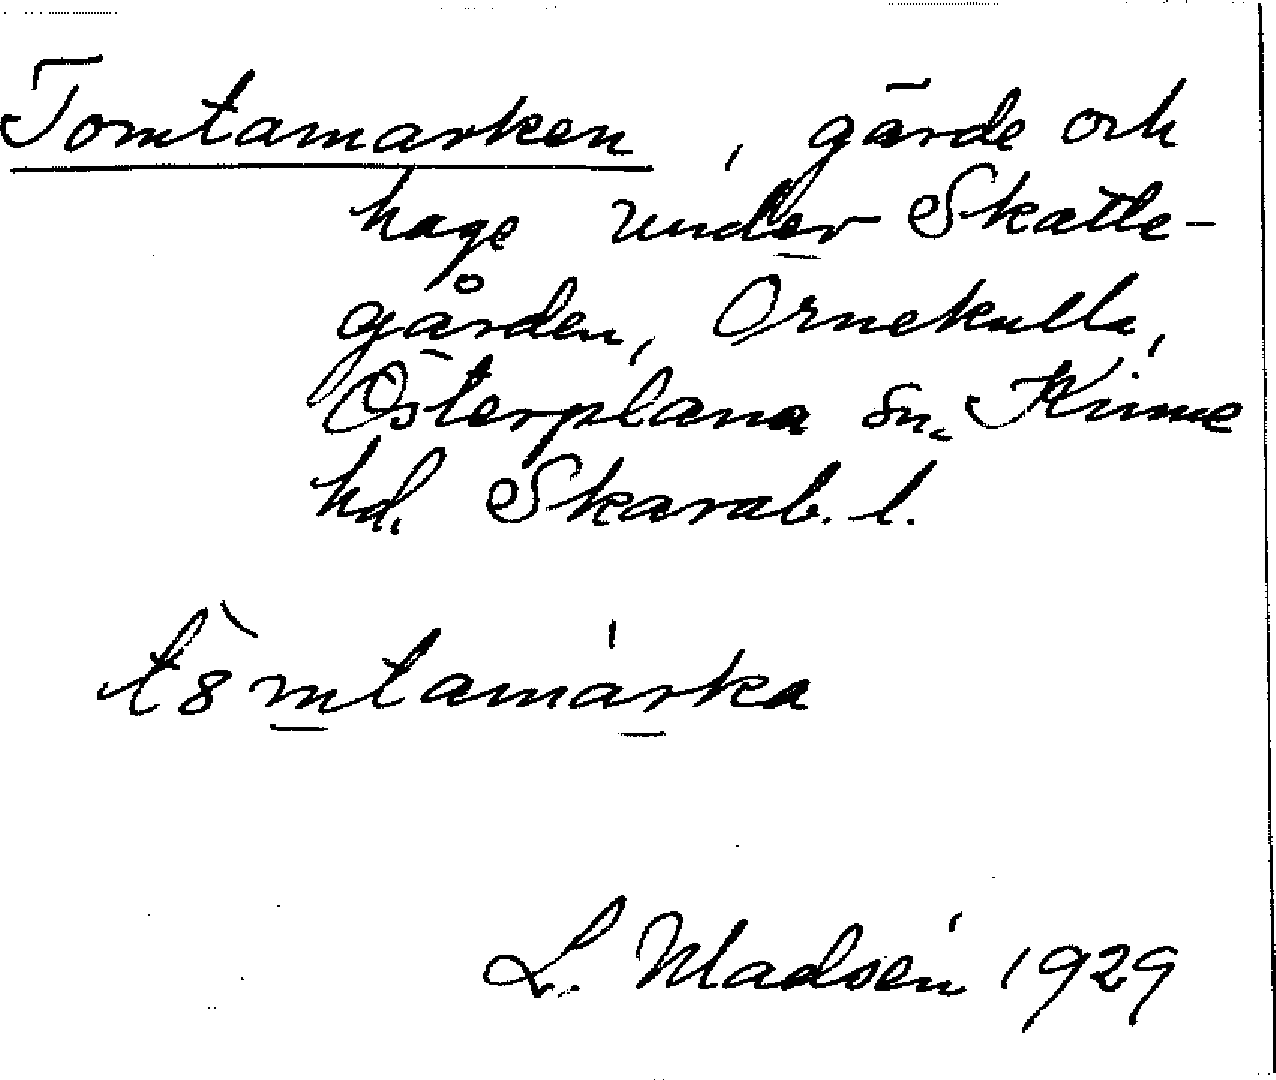 Tomtamarken, gärde och
hage under Skatte-
gården, Örnekulla,
Österplana sn. Kinne
hd. Skarab. l.
tȣ̀mtamárka
L. Madsén 1929